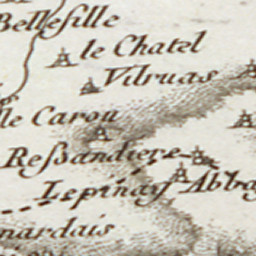 Bellefille
le Chatel
Vilruas
le Caron
Reßandiere
Lepinay Abba
nardais